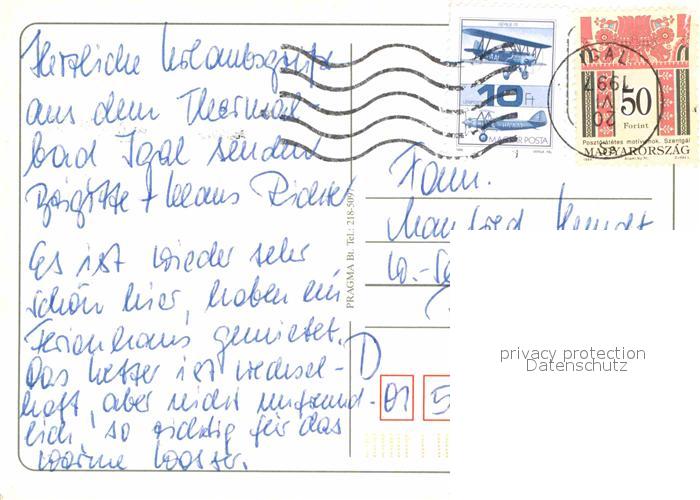 Herzliche Urlaubsgrüße
aus dem Thermal-
bad Igal senden
Brigitte + Klaus Richter
Es ist wieder sehr
schön hier, haben ein
Ferienhaus gemietet.
Das Wetter ist wechsel-
haft, aber nicht unfreund-
lich, so richtig für das
warme Wasser.
PRAGMA Bt. Tel.: 218-5097
10 Ft
MAGYAR POSTA
IGAL
1997
VI
20
50
Forint
Posztórátétes motívumok. Szentgál
MAGYARORSZÁG
Fam.
Manfred
D
01 5
privacy protection
Datenschutz